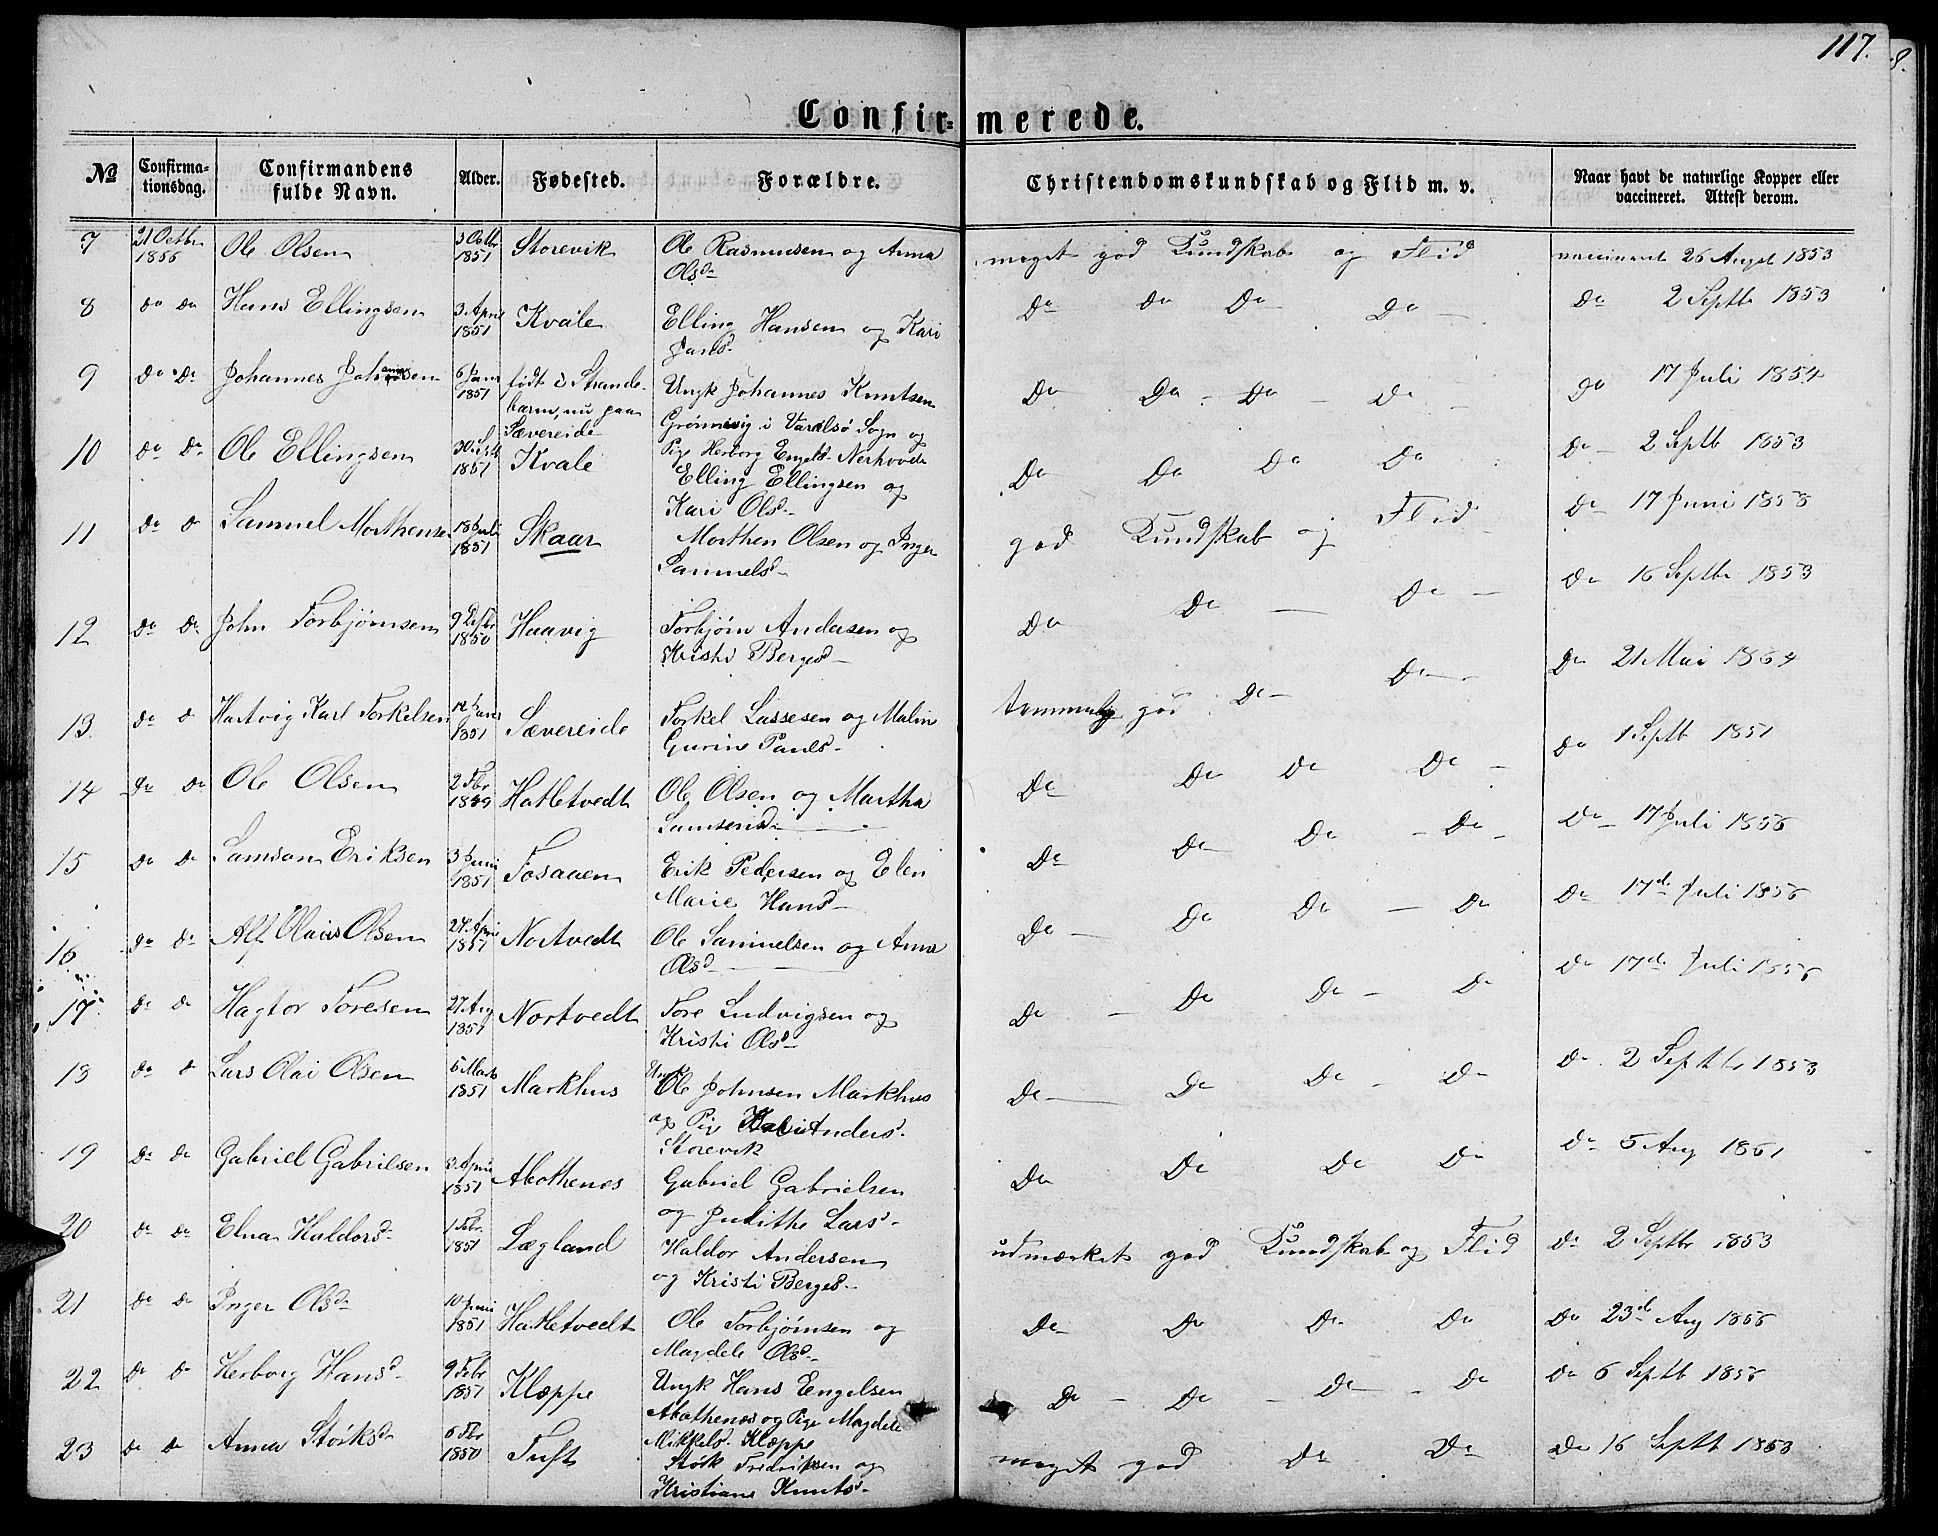 117.
8.
Confir= merede.
№ Confirma-tionsdag. Confirmandens fulde Navn. Alder. Fødested. Forældre. Christendomskundskab og Flid m. v. Naar havt de naturlige Kopper eller vaccineret. Attest derom.
7 21 Octbr Ole Olsen 3 Octbr 1851 Storevik Ole Rasmussen og Anna Olsd meget god Kundskab og Flid vaccineret 26 Augst 1853
8 do do Hans Ellingsen 3 April 1851 Kvåle Elling Hansen og Kari Do Do Do Do Do 2 Septb 1853
9 do do Johannes 6 1851 født i Strandebarm, nu paa Sævereide Ungk Johannes Knutsen Grønnevig i Varalsø Sogn og Pige Herborg Engelsd Nerhovde Do Do Do Do Do 17 Juli 1854
10 do do Ole Ellingsen 30 Septb 1851 Kvale Elling Ellingsen og Kari Olsd Do Do Do Do Do 2 Septb 1853
11 do d Samuel Morthensen 18 Juli 1851 Skaar Morthen Olsen og Inger Samuelsd god Kundskab og Flid Do 17 Juni 1853
12 do do John Torbjørnsen 9 1850 Haavig Torbjørn Andersen og Kristi Bergesd Do Do Do Do 16 Septbr 1853
13 do d Hartvig Karl Torkelsen 1851 Sævereide Torkel Lassesen og Malin Gurine Paulsd temmelig god Do Do Do 21 Mai
14 do do Ole Olsen 2 Fbr Hatletvedt Ole Olsen og Martha Samsonsd Do Do Do Do do 1 Septb 1851
15 do do Samson Eriksen 3 Juni 1851 Fosaaen Erik Pedersen og Elen Marie Hansd Do Do Do Do Do 17 Juli
16 do do Alf Olaus Olsen 1851 Nortvedt Ole Samuelsen og Anna Olsd Do Do Do Do Do 17de Juli
17 do do Hagtor Toresen 27 Aug 1851 Nortvedt Tore Ludvigsen og Kristi Olsd Do Do Do Do Do 17de Juli
18 do d Lars Olai Olsen 5 Marts 1851 Markhus Ungk Ole Johnsen Markhus og Pige Kari Andersd Storevik Do Do Do Do Do 2 Septbr 1853
19 do do Gabriel Gabrielsen April 1851 Gabriel Gabrielsen og Judithe Larsd Do Do Do Do Do 5 Aug
20 do do Elna Haldorsd 1 Febr 1851 Lægland Haldor Andersen og Kristi Bergesd udmærket god Kundskab og Flid Do 2 Septbr 1853
21 do do Inger Olsd 10 Juni 1851 Hatletvedt Ole Torbjørnsen og Magdele Olsd Do Do Do Do Do 23de Aug
22 do do Herborg Hansd 9 Febr 1851 Klæppe Ungk Hans Engelsen og Pige Magdele Mikkelsd Klæppe Do Do Do Do Do 6 Septb
23 do do Anna Størksd 6 Fbr 1850 Tuft Størk Fredriksen og Kristiane Knutsd meget god Do Do Do 16 Septb 1853